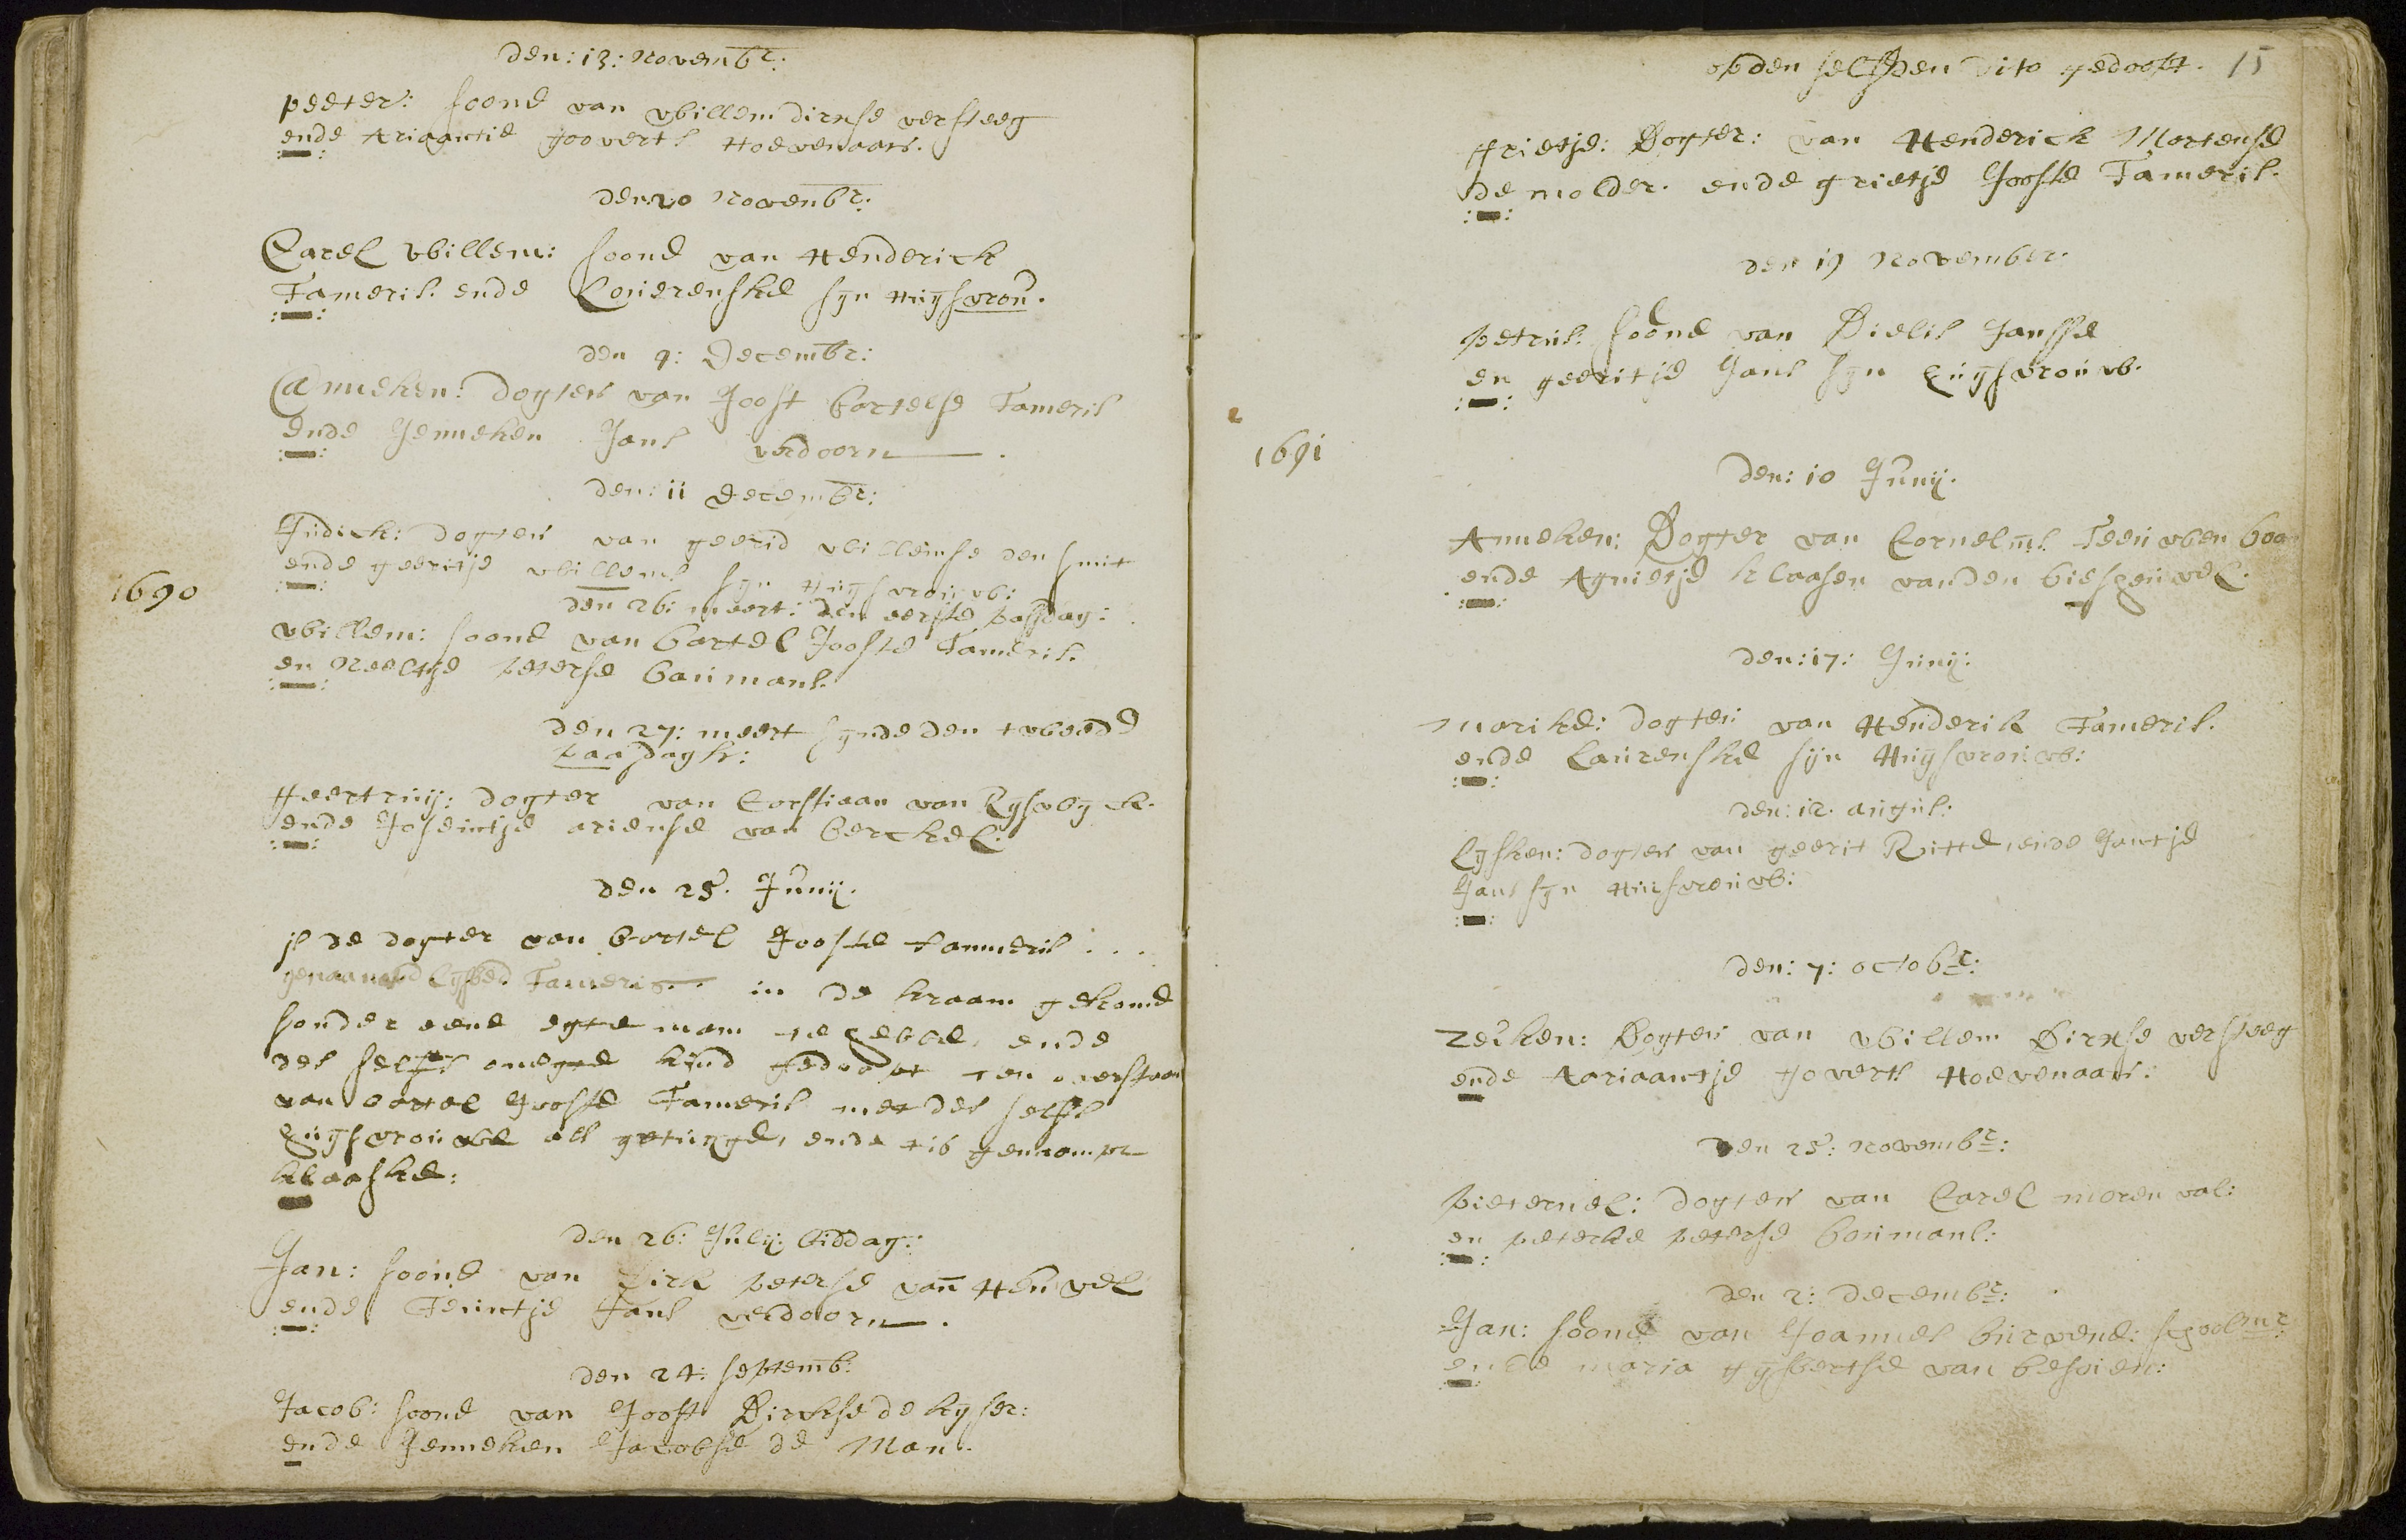 den: 13: Novembr:
peeter: soone van willem dirkse versteeg
ende Ariaantie goverts Hoevenaars.
den: 20 Novembr:
Carel willem: soone van Henderick
Tameris. ende Louerenske syn Huysvrou.
den 4: Decembr:
Anneken: dogter van Joost bartelse Tameris
ende Jenneken Jans verdoorn
den: 11 Decembr:
Judick: dogter van geerid willemse den smit
ende geeritje willems syn Huysvrouw:
1690
den 26: meert: den eerste pasdag:
willem: soone van bartel Jooste Tameris.
en Neeltje peterse boumans.
den 27: meert synde den tweede
paasdagh:
Heertruy: dogter van Corstiaan van Ryswyck.
ende Joseintje ariense van berckel:
den 25. Junij.
is de dogter van bartel Jooste tammeris
genaamd Lysbed Tameris in de kraam gekome
sonder eene egte man te hebbe, ende
des selfs onegte kind gedoopt ten overstaan
van bartel Jooste Tameris met des selfs
huysvrouwe als getuyge, ende tis genaampt
klaaske:
den 26: July: biddag:
Jan: soone van Dirk peterse van Heuvel
ende Teuntje Jans verdoorn.
den 24: septemb:
Jacob: soone van Joost Dirkse de kyser:
ende Jenneken Jacobse de Man.
op den selfden dito gedoopt. 15
Grietje: Dogter: van Henderick Martense
de molder. ende grietje Jooste Tameris.
den 19 November.
petrus. soone van Dielis Jansse
en geeritje Jans syn huysvrouw.
1691
den: 10 Junij.
Anneken: Dogter van Cornelius Teeuwen
ende Agnietje klaasen vanden
den: 17: Junij:
marike: dogter van Henderik Tameris.
ende Laurenske sijn Huysvrouw:
den: 12. augus:
Lysken: dogter van geerit Ritte, ende Jantje
Jans syn Huisvrouw:
den: 7: octobr:
Zeiken: Dogter van willem Dirkse versteeg
ende Aariaantje Goverts Hoevenaars:
den 25: Novembr:
pieternel: dogter van Carel moren val:
en peterke peterse boumans:
den 2: decembr:
Jan: soone van Joannes burvene: schoolmr
ende maria gysbertse van besoien: